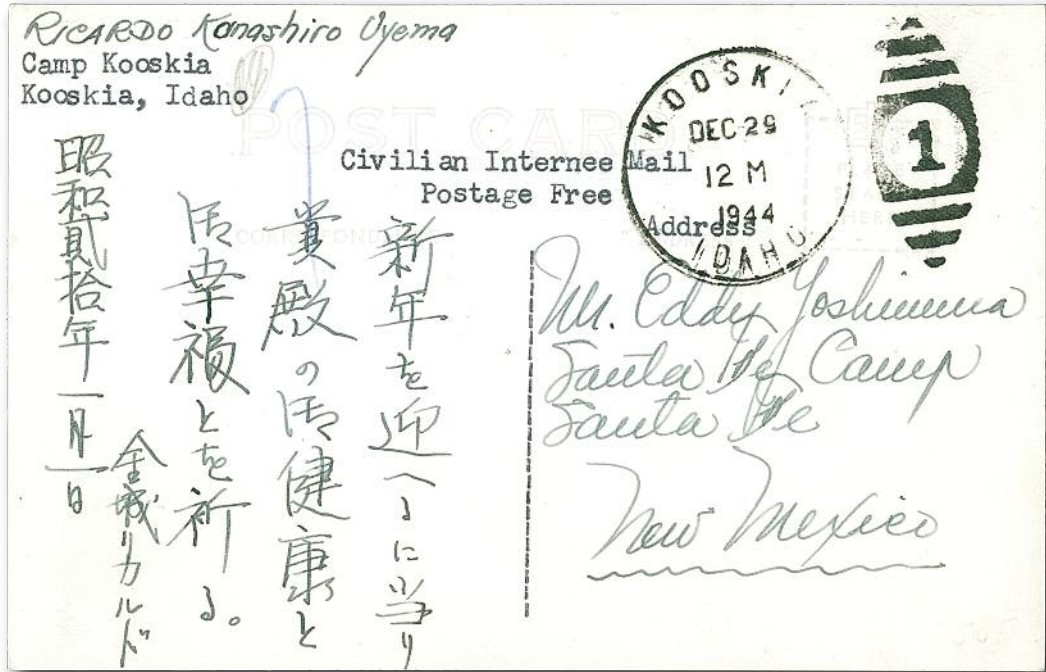 RICARDO Kanashiro Uyema
Camp Kooskia
Kooskia, Idaho
POST CARD
Civilian Internee Mail
Postage Free
Address
KOOSKIA
DEC 29
12 M
1944
IDAHO
1
Mr. Eddy Yoshimura
Santa Fe Camp
Santa Fe
New Mexico
新年を迎へるに当り
貴殿の御健康と
御幸福とを祈る。
金城リカルド
昭和貳拾年一月一日